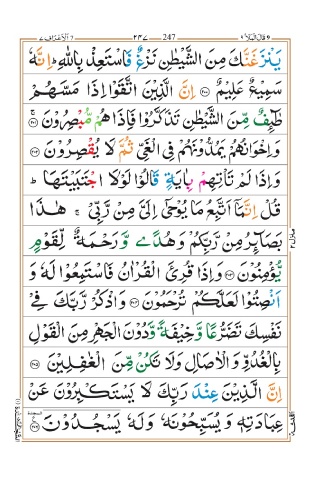 قال الملا ٩ 247 ٢٣٧ الاعراف ٧
يَنْزَغَنَّكَ مِنَ الشَّيْطٰنِ نَزْغٌ فَاسْتَعِذْ بِاللّٰهِ ؕ اِنَّهٗ
سَمِيْعٌ عَلِيْمٌ ۝۲۰۰ اِنَّ الَّذِيْنَ اتَّقَوْا اِذَا مَسَّهُمْ
طٰٓئِفٌ مِّنَ الشَّيْطٰنِ تَذَكَّرُوْا فَاِذَا هُمْ مُّبْصِرُوْنَ ۝۲۰۱
وَاِخْوَانُهُمْ يَمُدُّوْنَهُمْ فِى الْغَىِّ ثُمَّ لَا يُقْصِرُوْنَ ۝۲۰۲
وَاِذَا لَمْ تَاْتِهِمْ بِاٰيَةٍ قَالُوْا لَوْلَا اجْتَبَيْتَهَا ؕ
قُلْ اِنَّمَاۤ اَتَّبِعُ مَا يُوْحٰٓى اِلَىَّ مِنْ رَّبِّىْ ۚ هٰذَا
بَصَآئِرُ مِنْ رَّبِّكُمْ وَهُدًى وَّرَحْمَةٌ لِّقَوْمٍ
يُّؤْمِنُوْنَ ۝۲۰۳ وَاِذَا قُرِئَ الْقُرْاٰنُ فَاسْتَمِعُوْا لَهٗ وَ
اَنْصِتُوْا لَعَلَّكُمْ تُرْحَمُوْنَ ۝۲۰۴ وَاذْكُرْ رَّبَّكَ فِىْ
نَفْسِكَ تَضَرُّعًا وَّخِيْفَةً وَّدُوْنَ الْجَهْرِ مِنَ الْقَوْلِ
بِالْغُدُوِّ وَالْاٰصَالِ وَلَا تَكُنْ مِّنَ الْغٰفِلِيْنَ ۝۲۰۵
اِنَّ الَّذِيْنَ عِنْدَ رَبِّكَ لَا يَسْتَكْبِرُوْنَ عَنْ
عِبَادَتِهٖ وَيُسَبِّحُوْنَهٗ وَلَهٗ يَسْجُدُوْنَ ۝۲۰۶
منزل ٢
السجدة